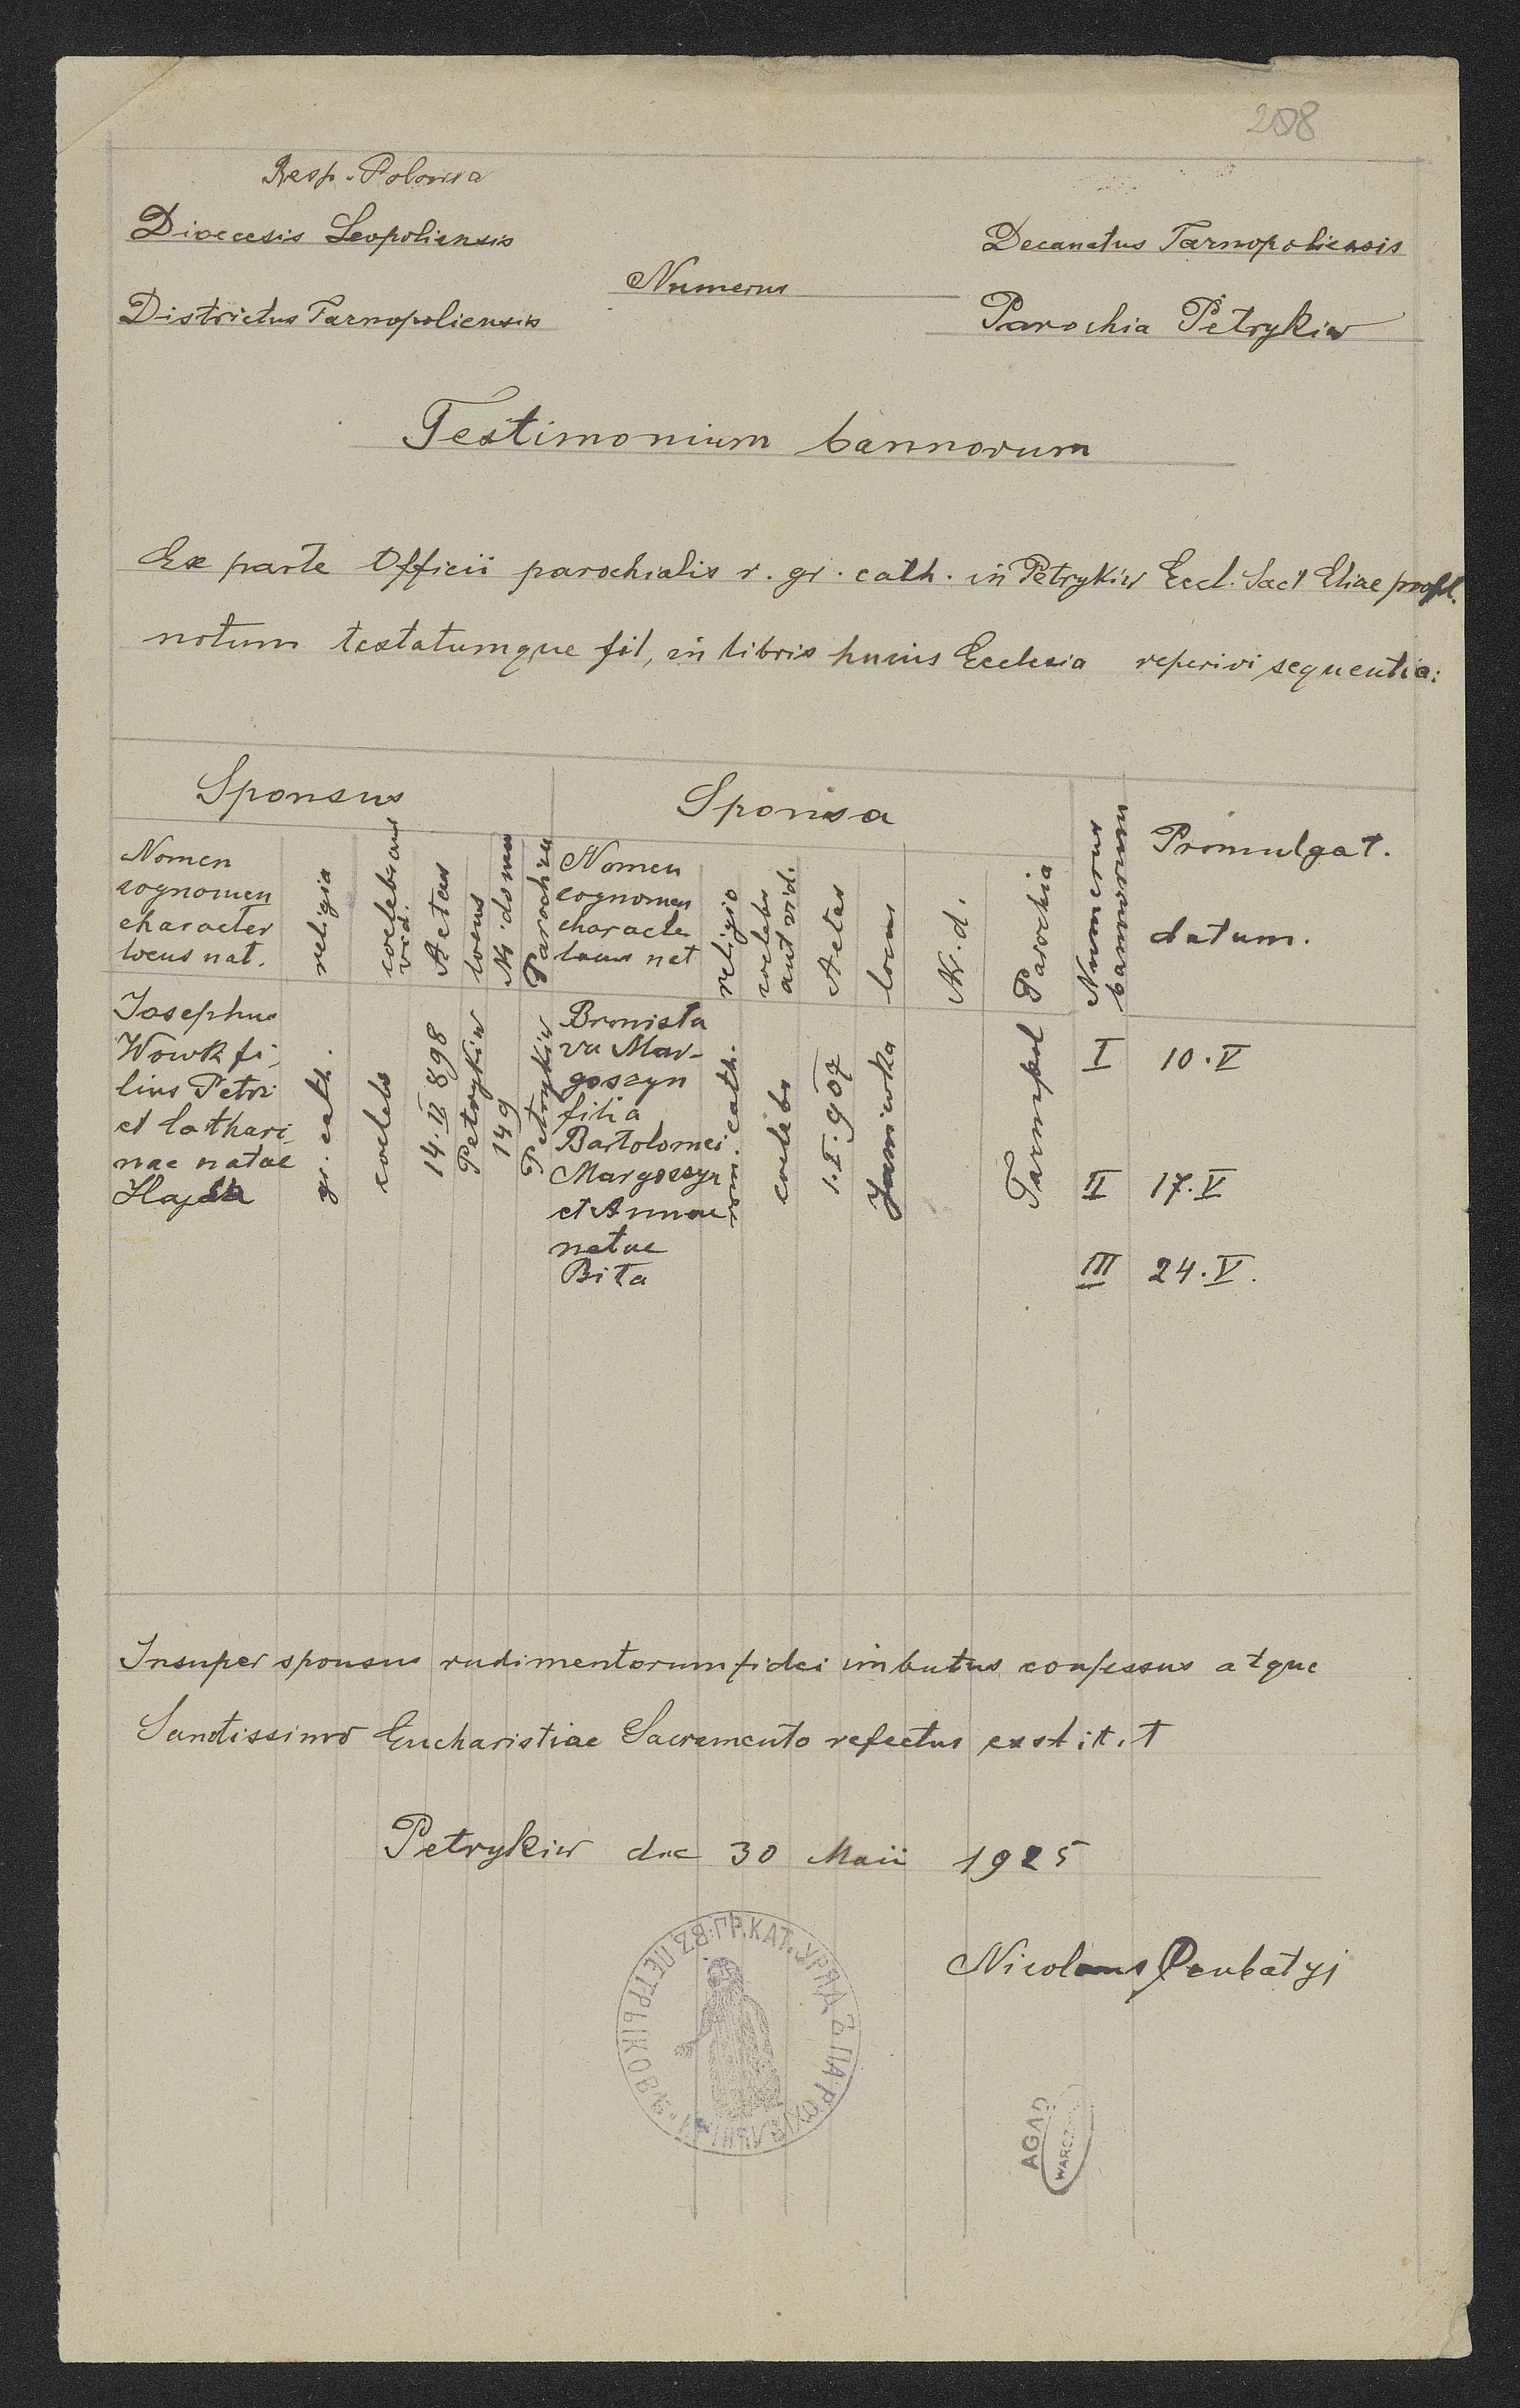 208
Resp. Polona
Dioecesis Leopoliensis
Decanatus Tarnopoliensis
Numerus
Districtus Tarnopoliensis
Parochia Petrykiw
Testimonium bannorum
Ex parte Officii parochialis r. gr. cath. in Petrykiw Eccl. Sact Eliae proph.
notum testatumque fit, in libris huius Ecclesia reperivi sequentia:
Sponsus
Nomen
cognomen
character
locus nat.
religia
coelebs aut
vid.
Aetas
locus
Nr domu
Parochia
Sponsa
Nomen
cognomen
characte
locus nat
religio
coelebs
aut vid.
Aetas
locus
Nr. d.
Parochia
Numerus
bannorum
Promulgat.
datum.
Josephus
Wowk fi-
lius Petri
et Cathari-
nae natae
gr. cath.
coelebs
14.II 898
Petrykiw
149
Petrykiw
Bronisla
va Mar-
goszyn
filia
Bartolomei
Margoszyn
et Annae
natae
Bita
rom. cath.
coelebs
1.I.907
Janiwka
Tarnopol
I 10.V
II 17.V
III 24.V.
Insuper sponsus rudimentorum fidei imbutus confessus atque
Sanctissimo Eucharistiae Sacramento refectus exstitit
Petrykiw die 30 Maii 1925
Nicolaus
ГР.КАТ.УРЯДЪ ПАРОХІАЛЬНЫЙ ВЪ ПЕТРЫКОВѢ
AGAD
WARSZ